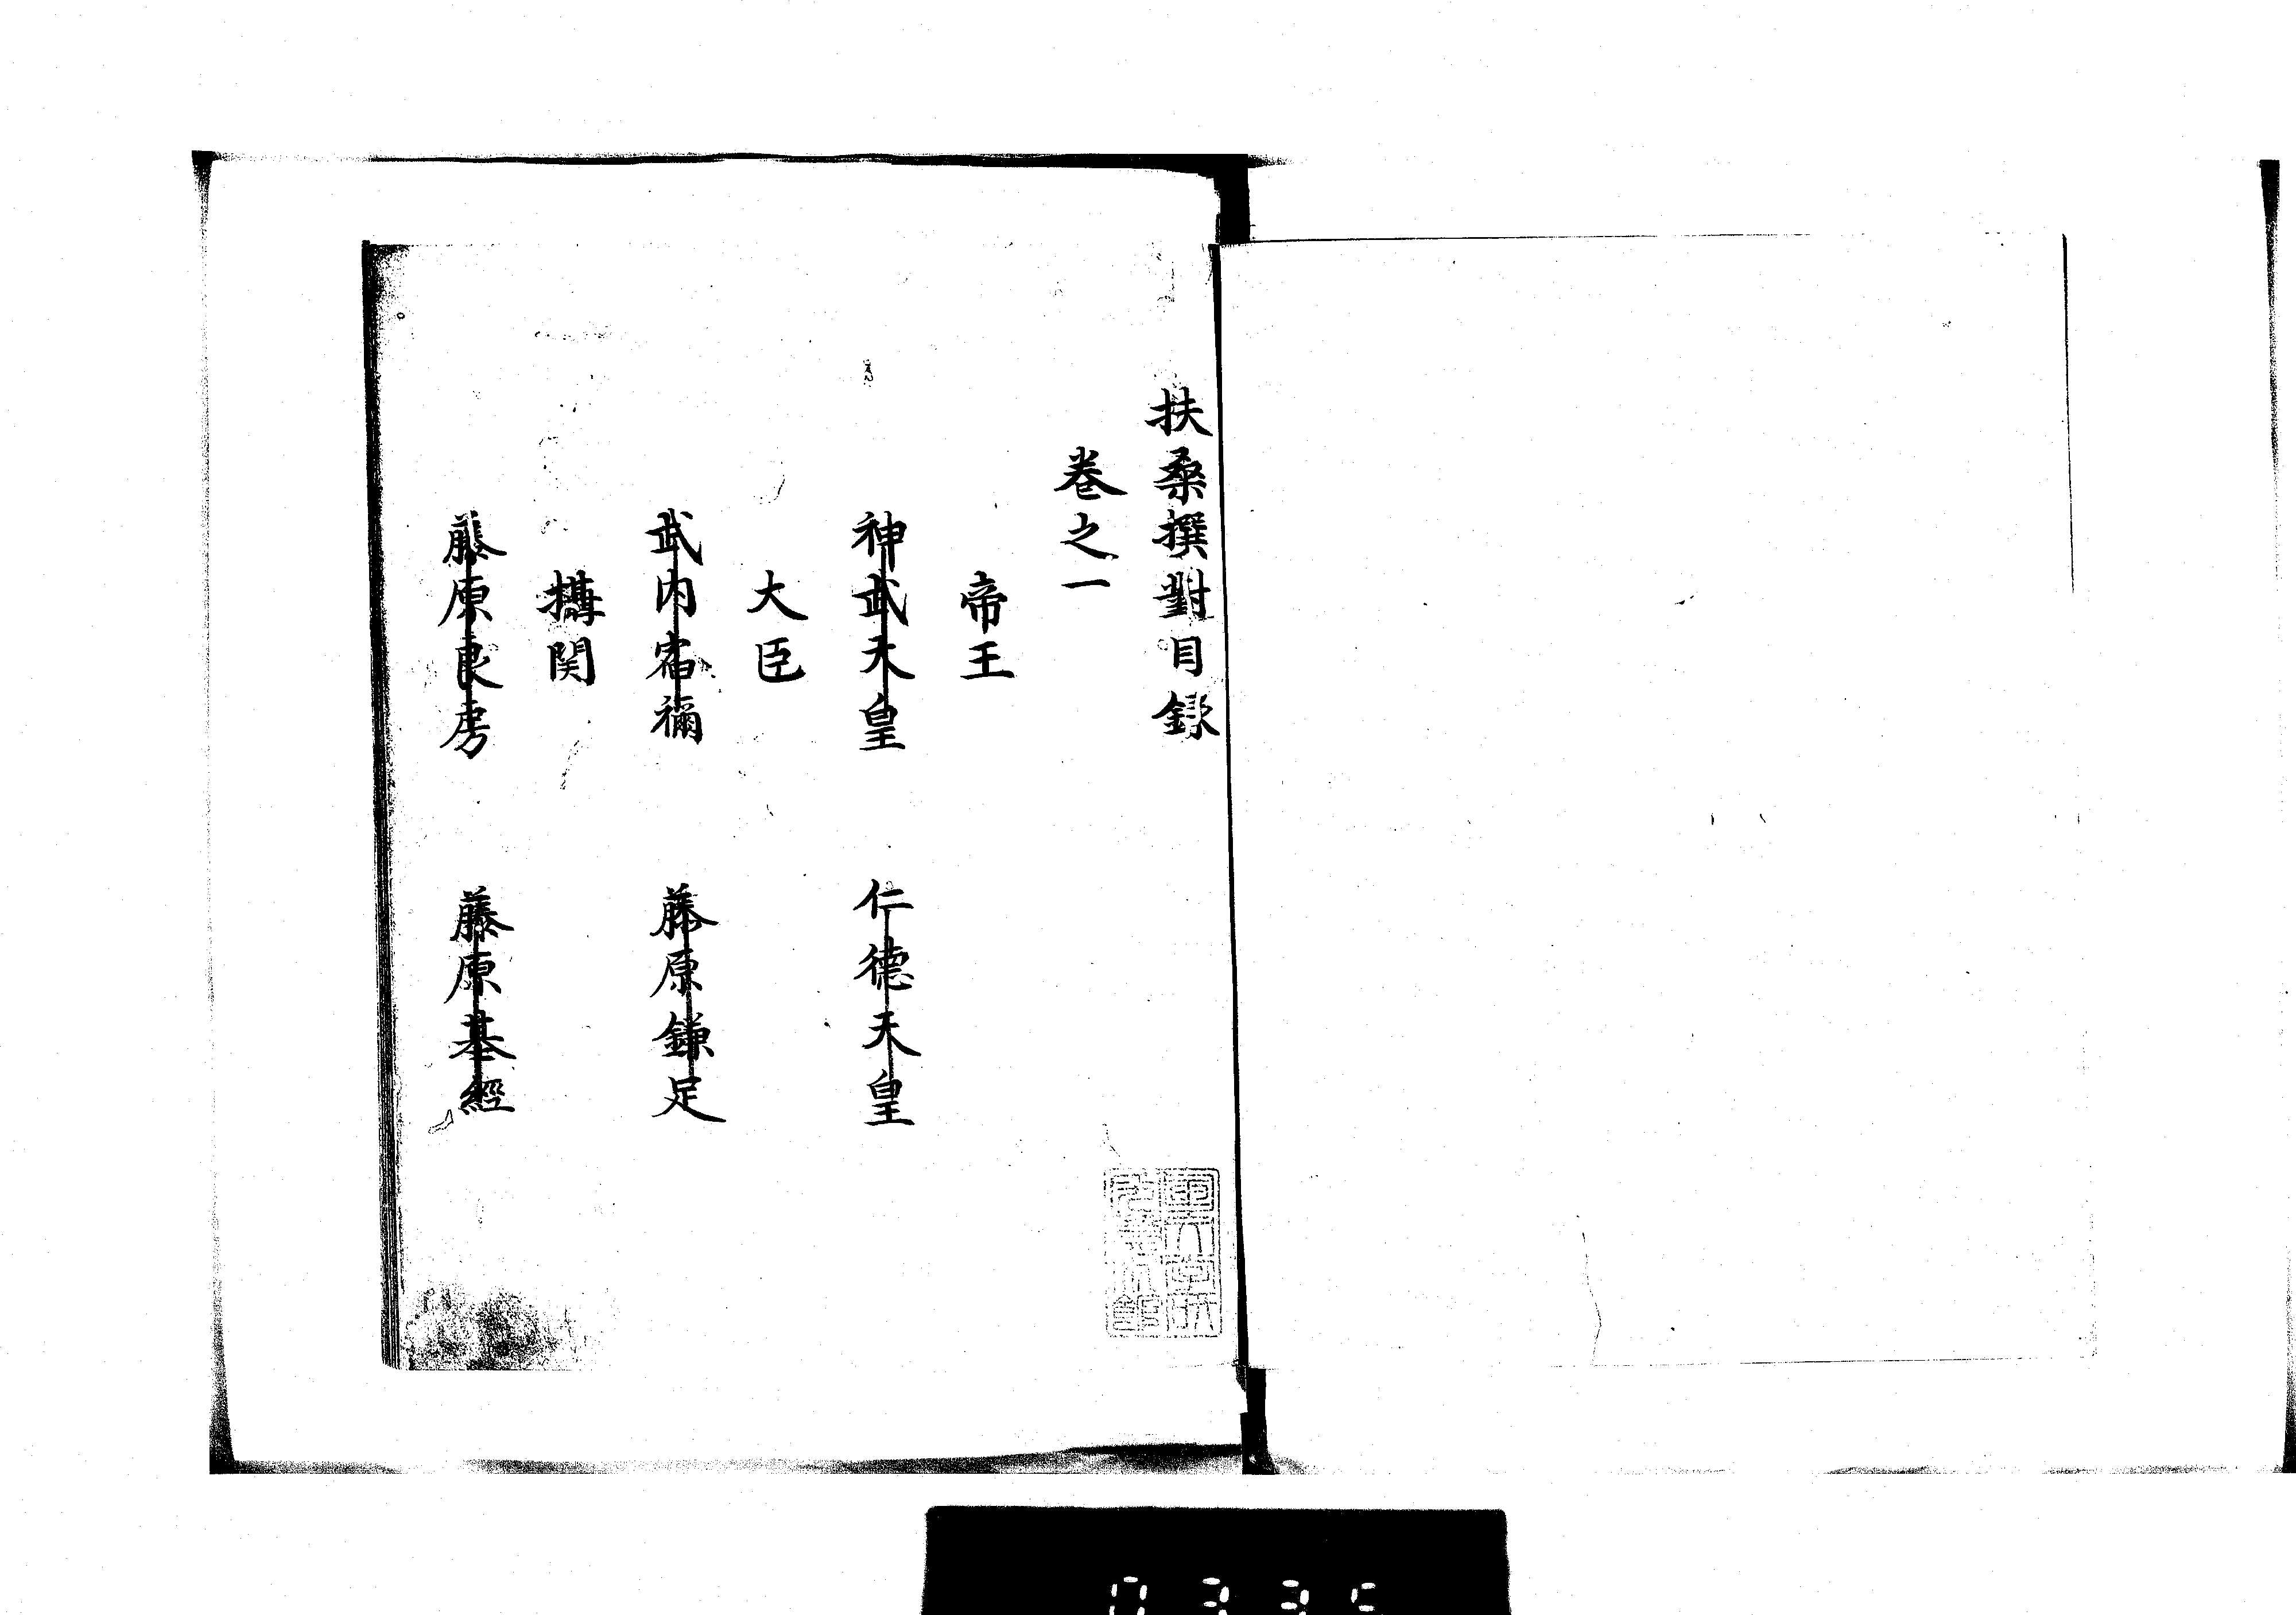 扶桑撰對目録
巻之一
帝王
神武天皇　仁德天皇
大臣
武内宿禰　藤原鎌足
攝関
藤原良房　藤原基經